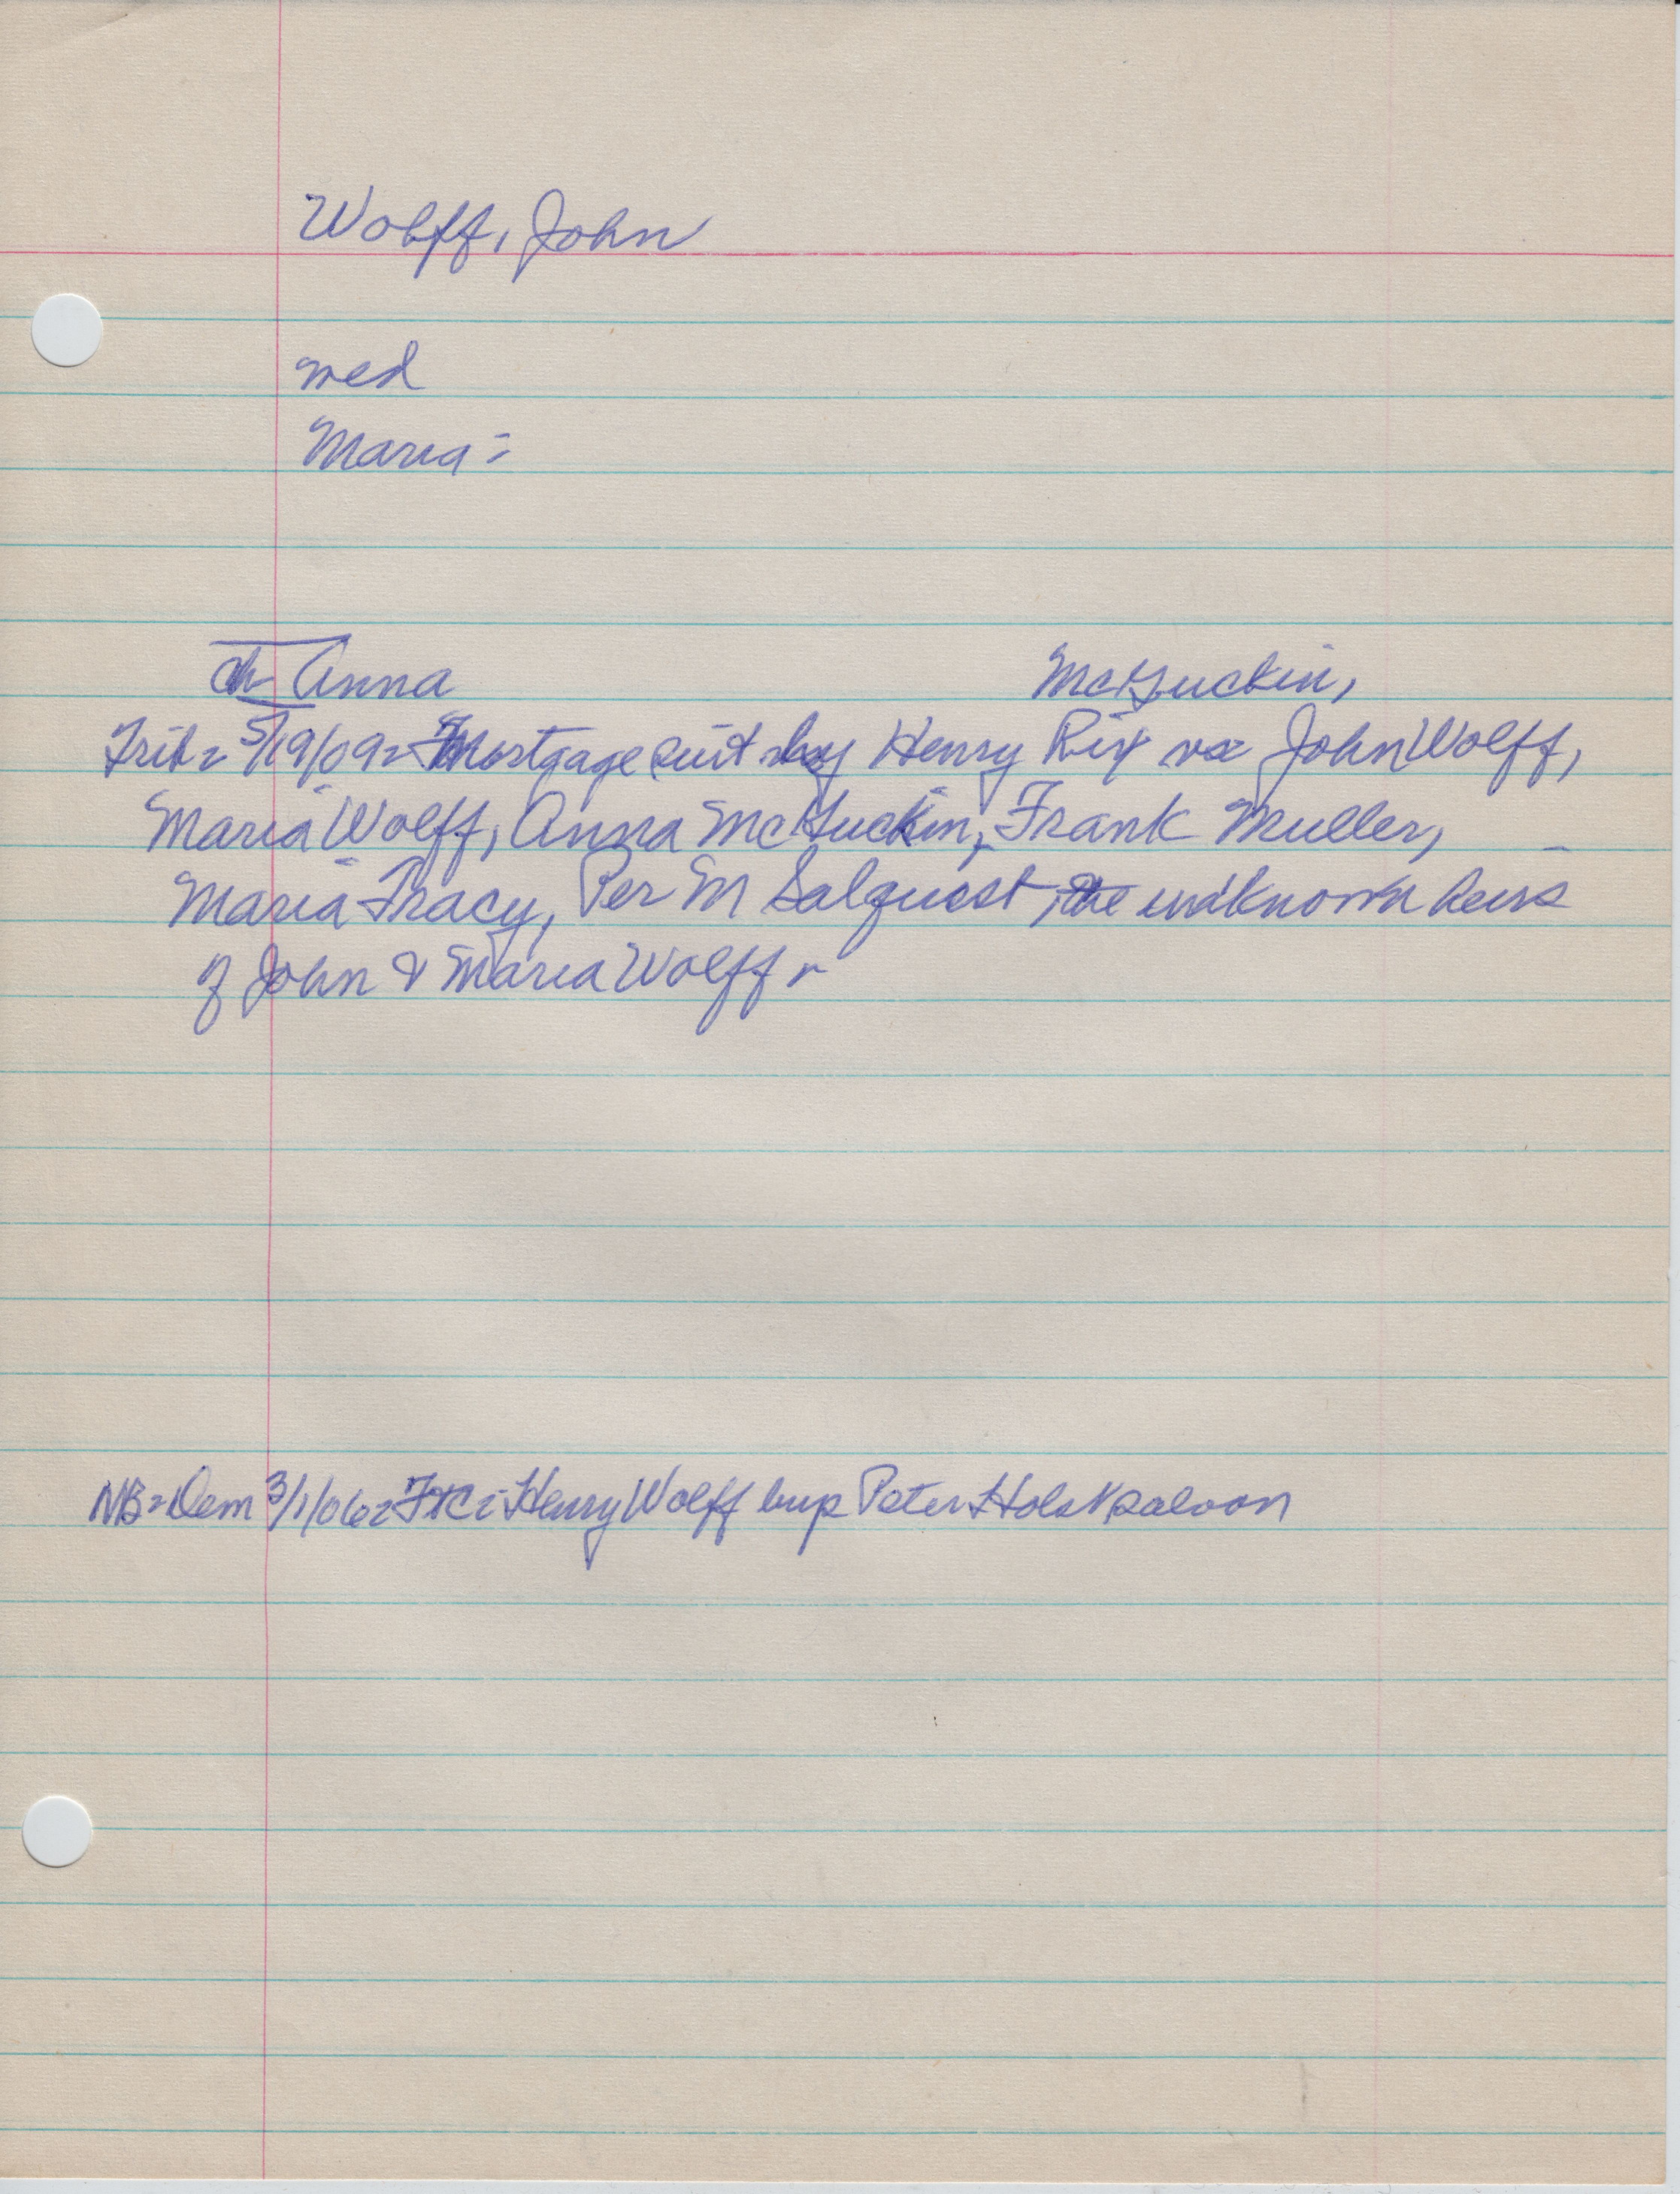 Wolff, John
med
Maria =
ch Anna McGuckin,
Trib = 5/19/09 = Mortgage suit by Henry Rix vs John Wolff,
Maria Wolff, Anna McGuckin, Frank Muller,
Maria Tracy, Per M Salquest, the unknown heirs
of John & Maria Wolff -
NB = Dem 3/1/06 = = Henry Wolff buys Peter Holst saloon